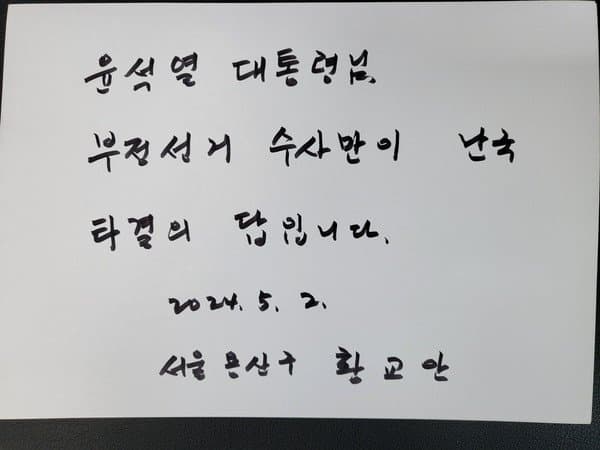 윤석열 대통령님.
부정선거 수사만이 난국
타결의 답입니다.
2024. 5. 2.
서울 용산구 황교안